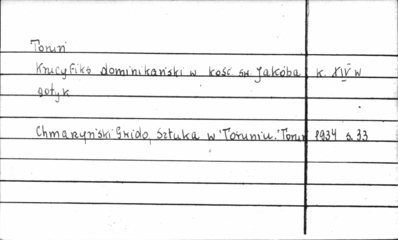 Toruń
Krucyfiks dominikański w kość. św Jakóba k. XIV w
gotyk
Chmarzyński Gwido, Sztuka w Toruniu. Toruń 1934 s. 33